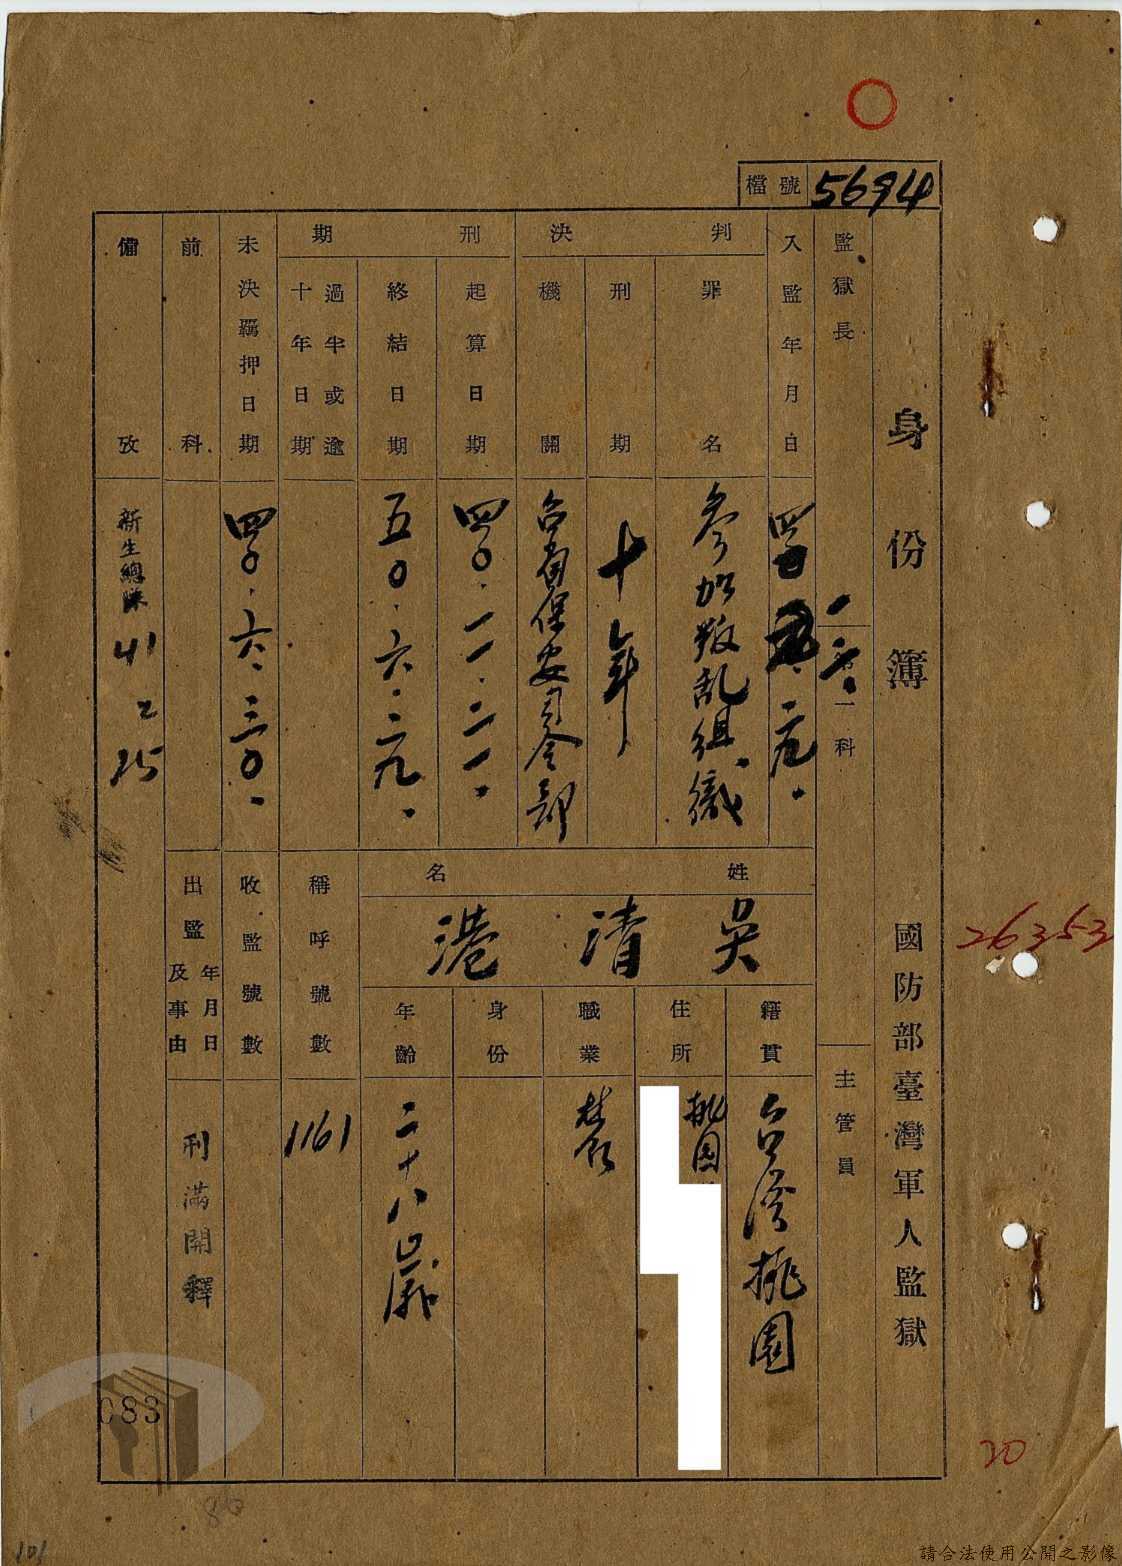 檔號 5694
身份簿 國防部臺灣軍人監獄
監獄長
第一科
主管員
入監年月日
二九.
判決
罪名 參加叛乱組織
刑期 十年
機關 台省保安司令部
刑期
起算日期 四〇.一一.二一.
終結日期 五〇.六.二九.
過半或逾十年日期
未決羈押日期 四〇.六.三〇.
前科
備攷 新生總隊 41 2 25
姓名
吳清港
籍貫 台湾桃園
住所 桃园
職業
身份
年齡 二十八歲
稱呼號數 1161
收監號數
出監年月日及事由 刑滿開釋
26353
20
083
80
101
請合法使用公開之影像